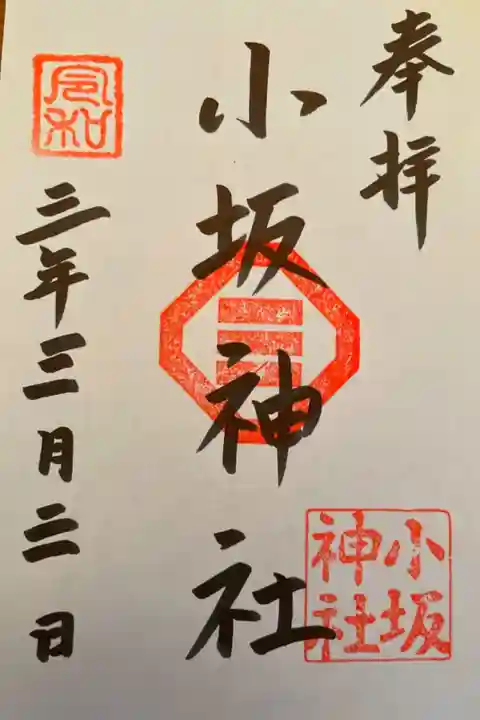 奉拝
小坂神社
小坂
神社
令和
三年三月二日